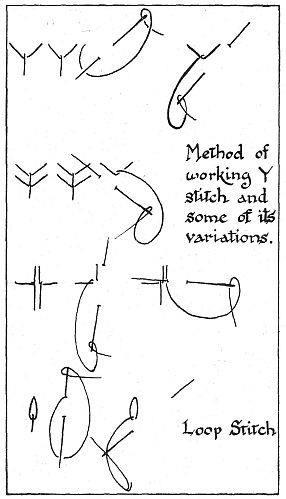 Method of
working Y
stitch and
some of its
variations.
Loop Stitch